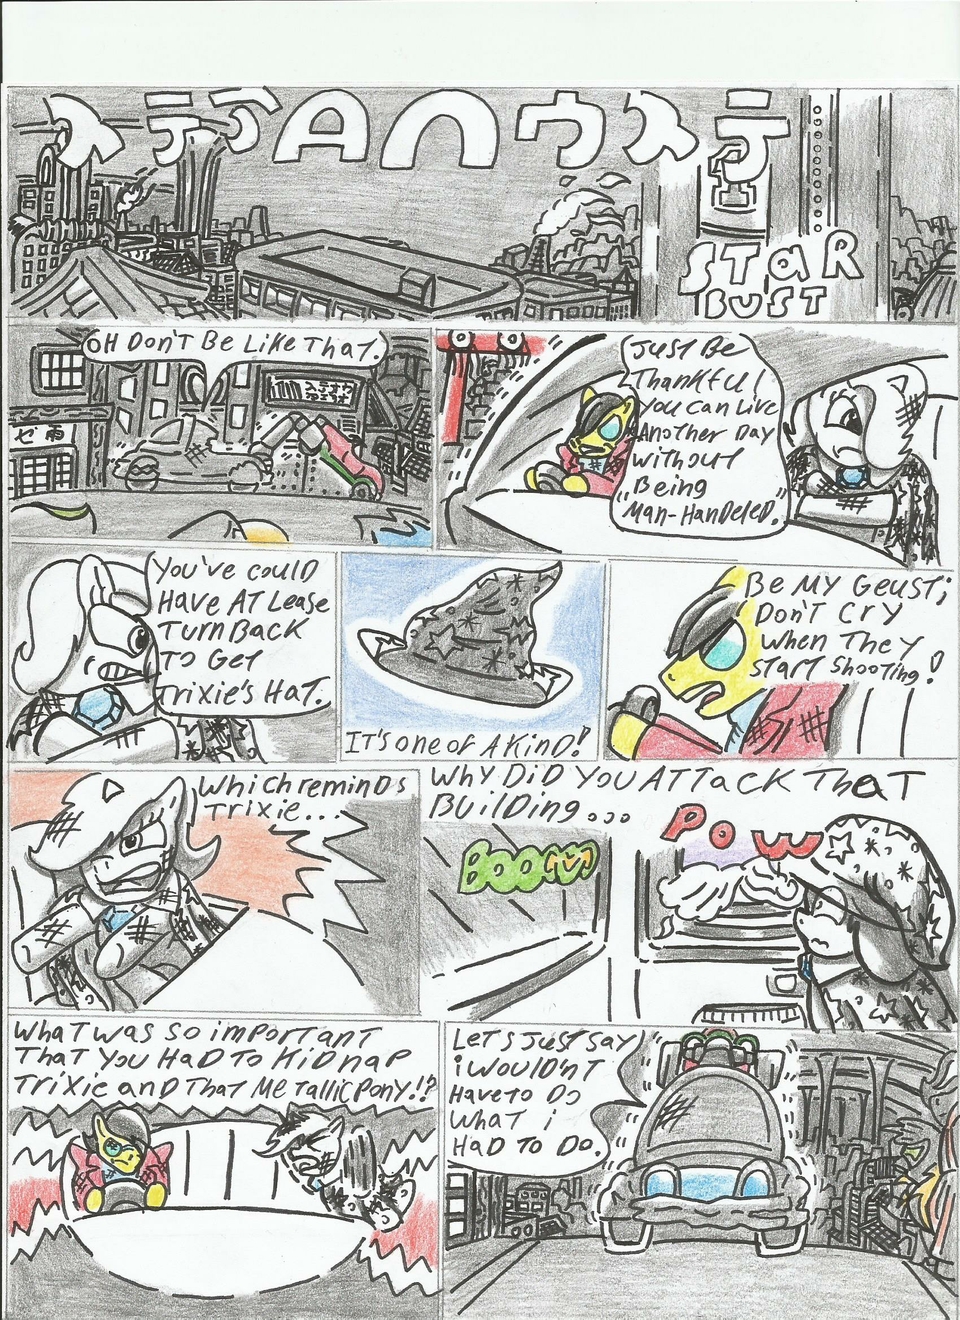 ステアAUウステ
STaR
BUST
OH DON'T Be Like That.
Just Be
Thankful
You can Live
Another Day
without
Being
"Man-Handeled."
You've could
Have AT Lease
Turn Back
To Get
Trixie's Hat.
It's one of A Kind!
Be My Geust;
Don't Cry
when They
start shooting!
Which reminds
Trixie...
Why Did You Attack That
Building...
BOOM
POW
What was so important
That you Had To Kidnap
Trixie and That Metallic Pony!!?
Let's Just say
i wouldn't
Have to Do
what i
Had To Do.